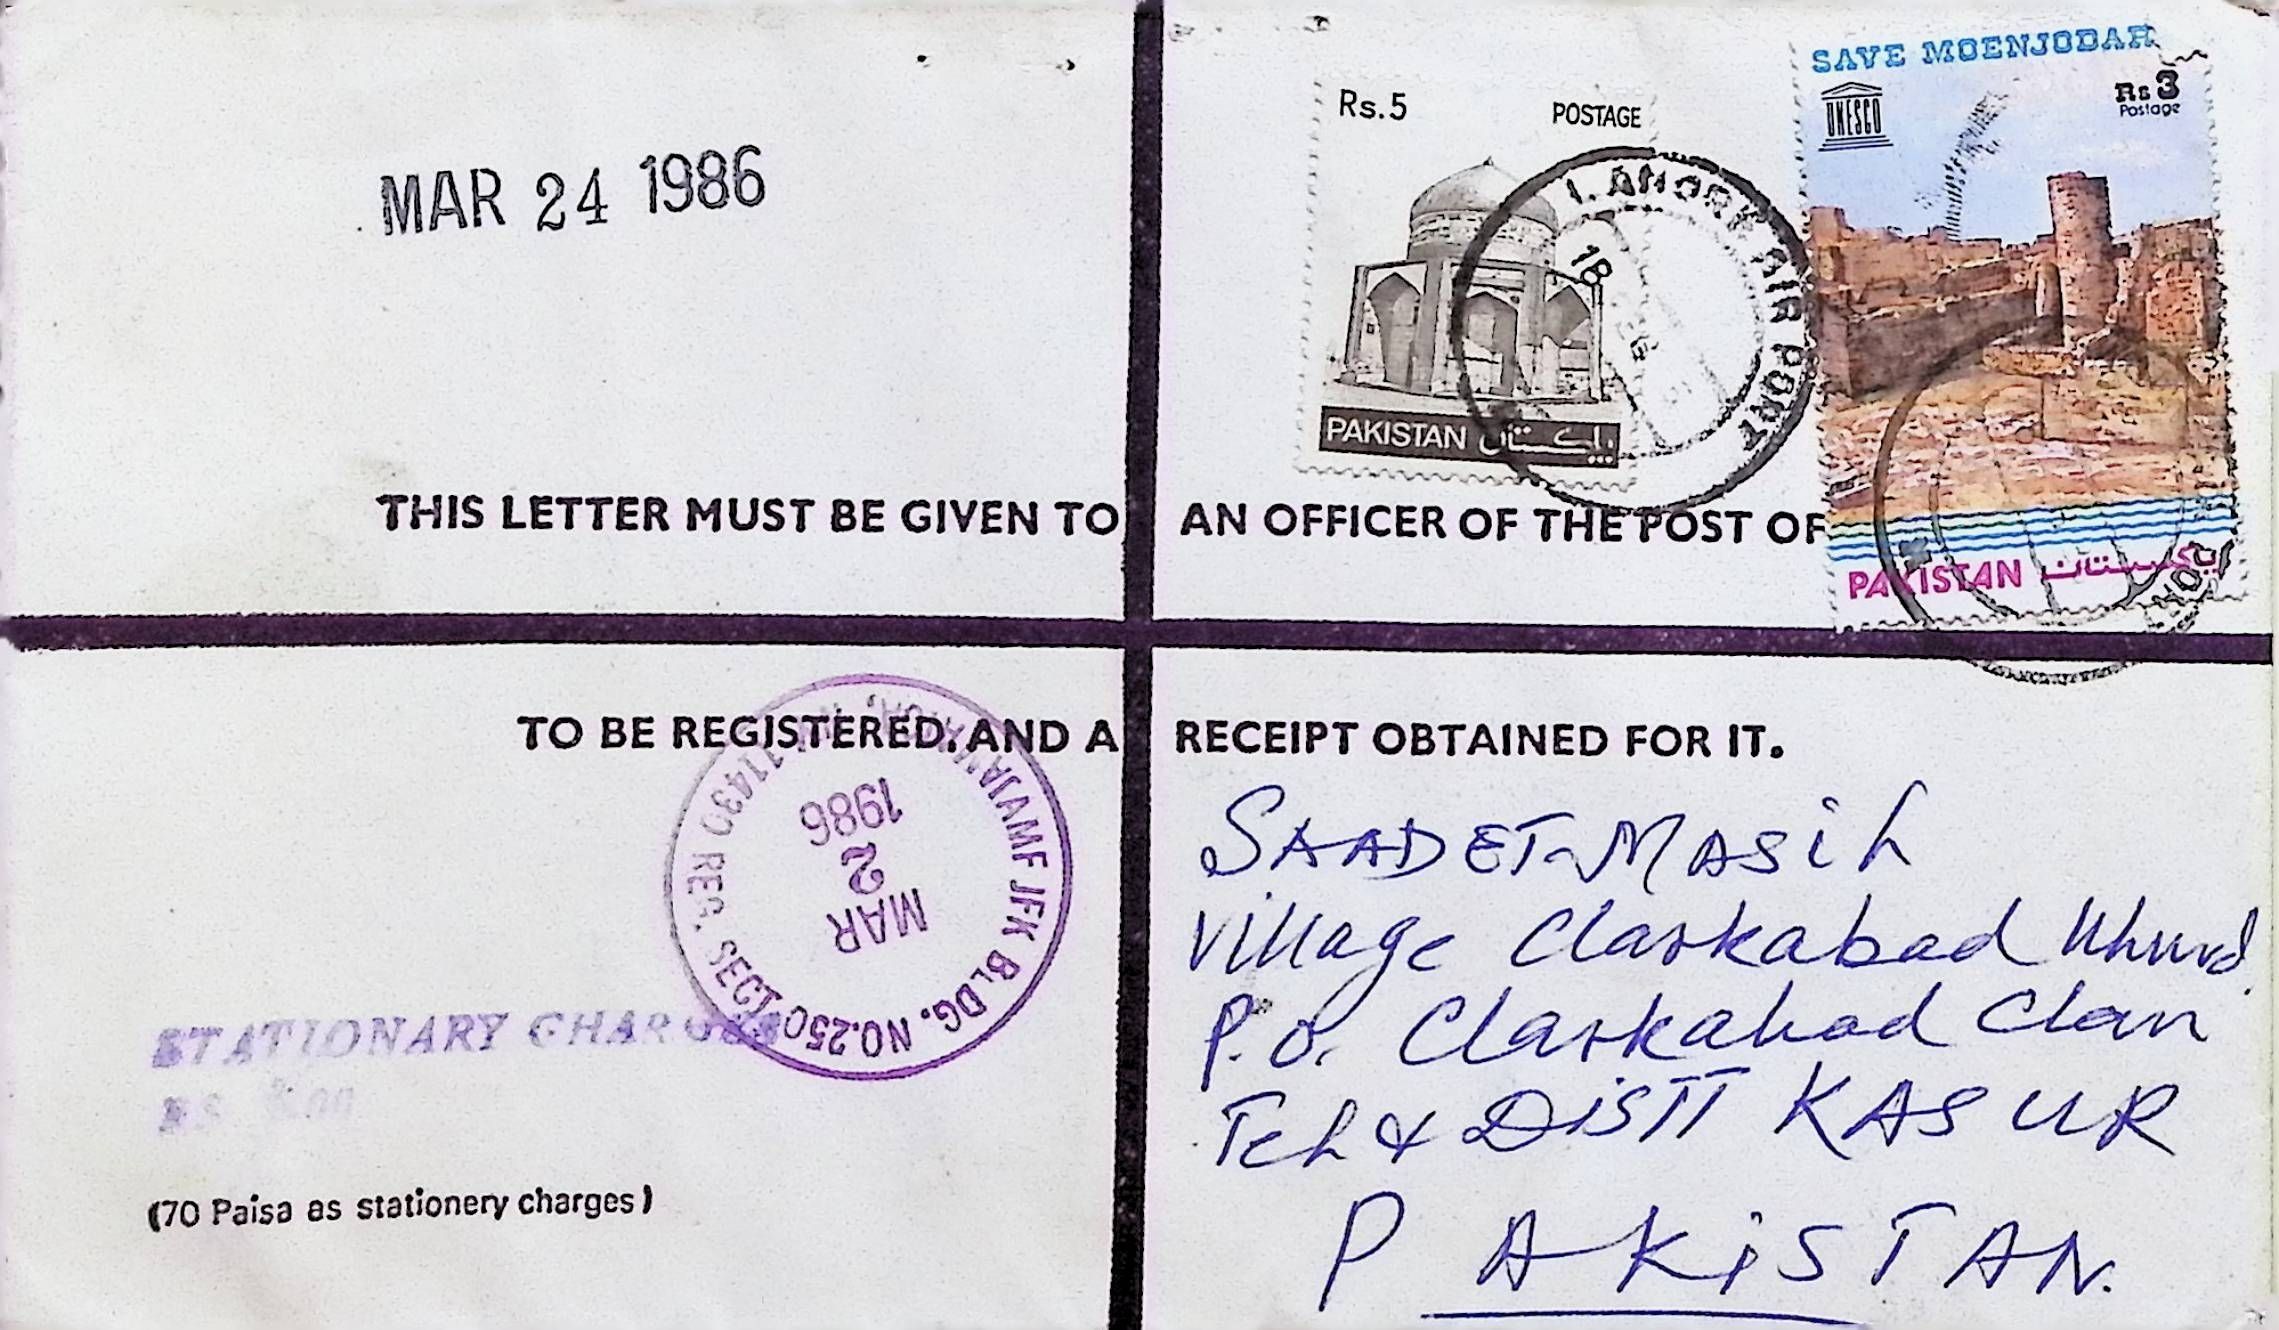 SAVE MOENJODAR
UNESCO
Rs 3
Postage
Rs.5 POSTAGE
MAR 24 1986
LAHORE AIR PORT
18
PAKISTAN پاکستان
PAKISTAN پاکستان
THIS LETTER MUST BE GIVEN TO AN OFFICER OF THE POST OF
TO BE REGISTERED, AND A RECEIPT OBTAINED FOR IT.
JAMAICA, N.Y. 11430 REG. SECT.
AMF JFK BLDG. NO. 250
MAR
2
1986
SAADET-MASih
Village Clarkabad Khurd
P.O. Clarkabad Clan
Teh & DiSTT KASUR
PAKiSTAN.
STATIONARY CHARGES
RS
(70 Paisa as stationery charges)